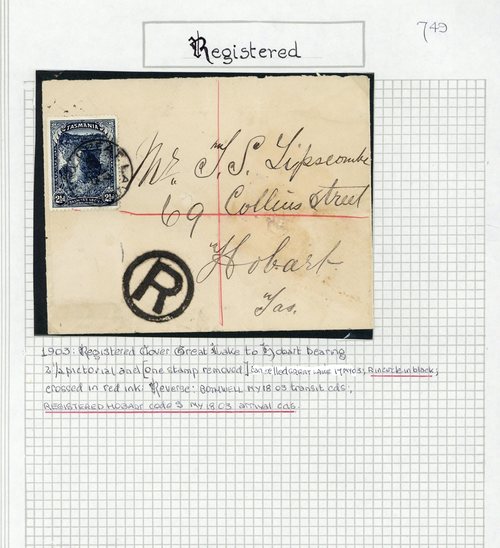 749
Registered
TASMANIA
2½
2½
Mr. T. S. Lipscombe
69 Collins Street
Hobart
Tas.
R
1903: Registered Cover Great Lake to Hobart bearing
pictorial and [one stamp removed] cancelled GREAT LAKE 17 MY 03; R in circle in black;
crossed in red ink. Reverse: BOTHWELL MY 18 03 transit cds;
REGISTERED HOBART code 3 MY 18 03 arrival cds.